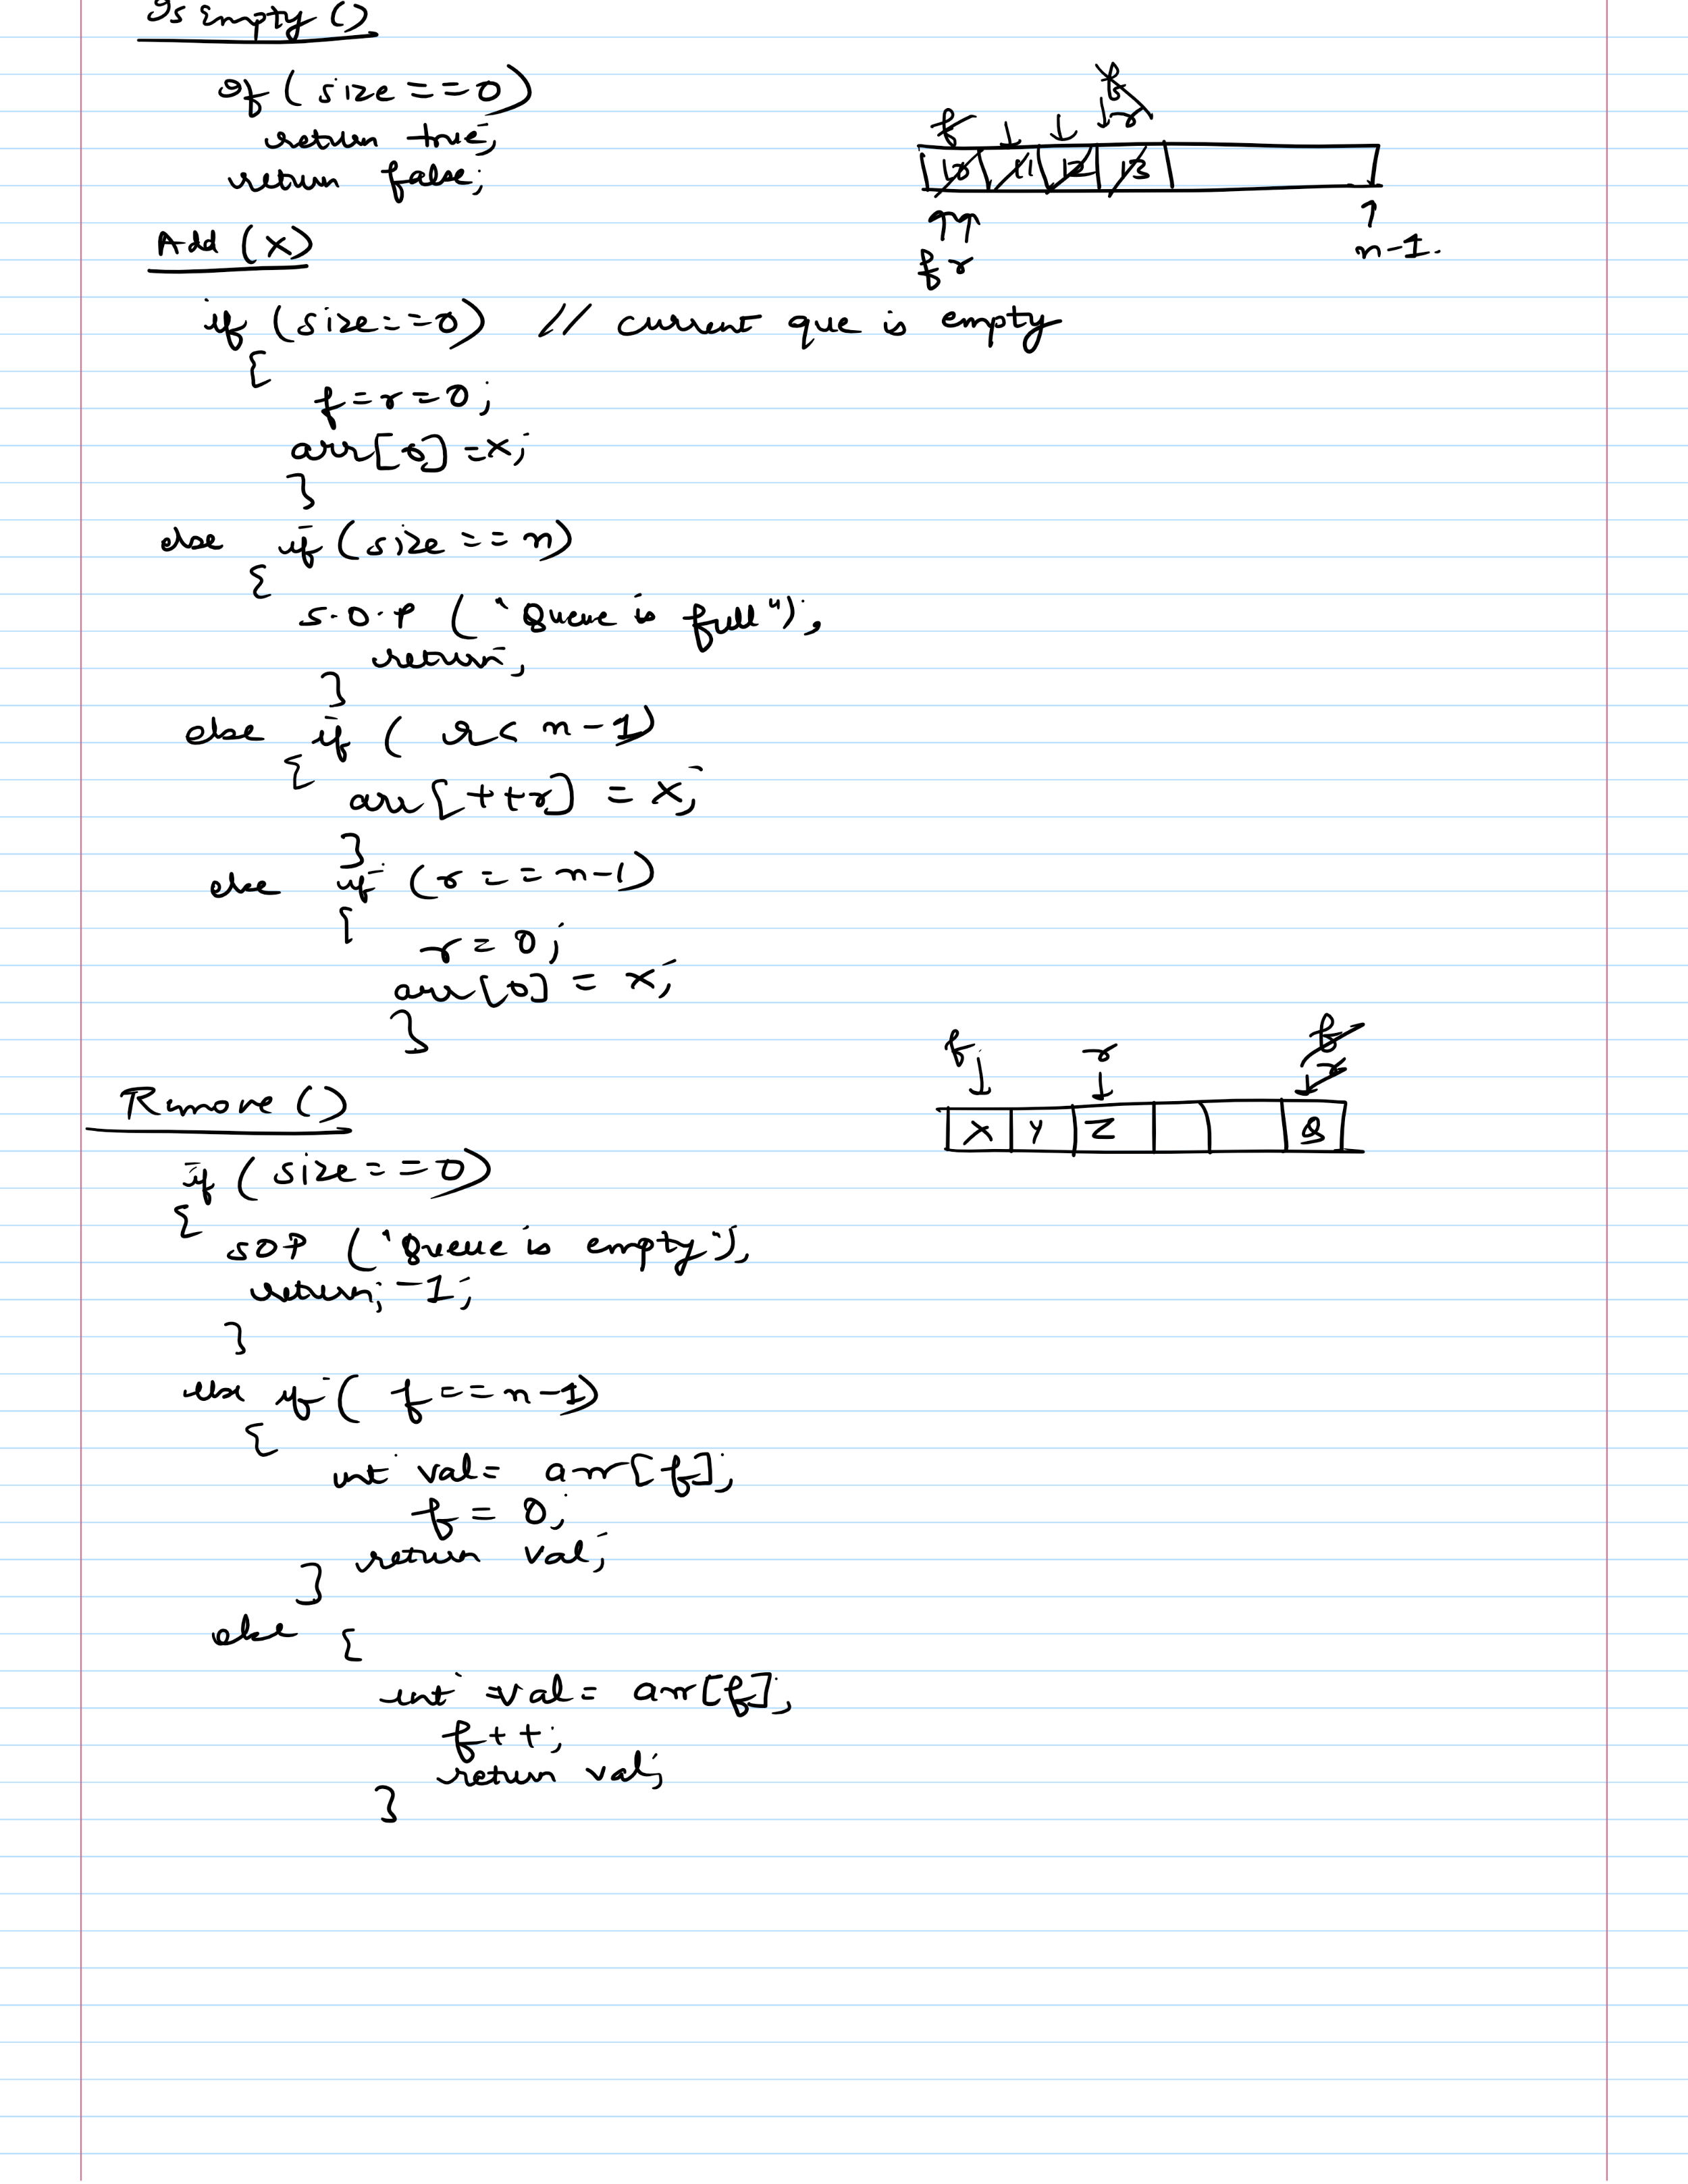 Is Empty ()
If (size == 0)
return true;
return false;
f r
10 11 12 13
f r
n-1.
Add (x)
if (size == 0) // current que is empty
{
f = r = 0;
arr[0] = x;
}
else if (size == n)
{
S.O.P ("Queue is full");
return;
}
else if ( r < n-1)
{
arr[++r] = x;
}
else if (r == n-1)
{
r = 0;
arr[0] = x;
}
f r f r
X Y Z Q
Remove ()
if (size == 0)
{
SOP ("Queue is empty");
return; -1;
}
else if ( f == n-1)
{
int val = arr[f];
f = 0;
return val;
}
else {
int val = arr[f];
f++;
return val;
}